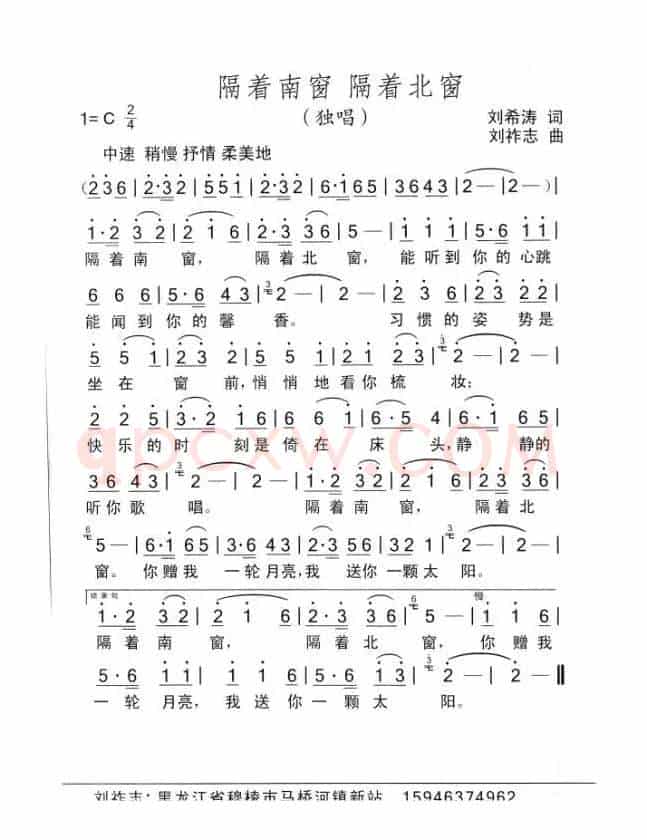 隔着南窗 隔着北窗
(独唱)
1=C 2/4
刘希涛 词
刘祚志 曲
中速 稍慢 抒情 柔美地
(236|232|551|230·330|2·32|6·165|3643|2—|2—)|
1·2 32|2 1 6|2·3 36|5—|1 1 1|5·6 11|
隔着南 窗, 隔着北 窗, 能听到你的心跳
6 6 6|5·6 43|2—|2—|2 3 6|23 23|
能闻到你的馨 香。 习惯的姿 势是
5 5 1|23 2|1 2 1 2|23|2—|
坐在 窗 前,悄悄地看你梳 妆:
2 2 5|3·2 16|6 6 1|6·5 4|5·6 56|
快乐的时 刻是倚在 床 头,静 静的
36 43|2—|1·2 332|2 1 6|23 36|
听你歌 唱。 隔着南 窗, 隔着北
5—|6·1 65|3·6 43|2·3 56|32 1|2—|2—:|
窗。 你赠我 一轮月亮,我 送你 一颗太 阳。
结束句
慢
1·2 332|2 1 6|2·3 36|5—|1 1 6|
隔着南 窗, 隔着北 窗, 你赠我
5·6 1|1 1|1 6|5·6 13|2—|2—‖
一轮 月亮, 我送你 一颗太 阳。
qpcxw.com
刘祚志:黑龙江省穆棱市马桥河镇新站 15946374962